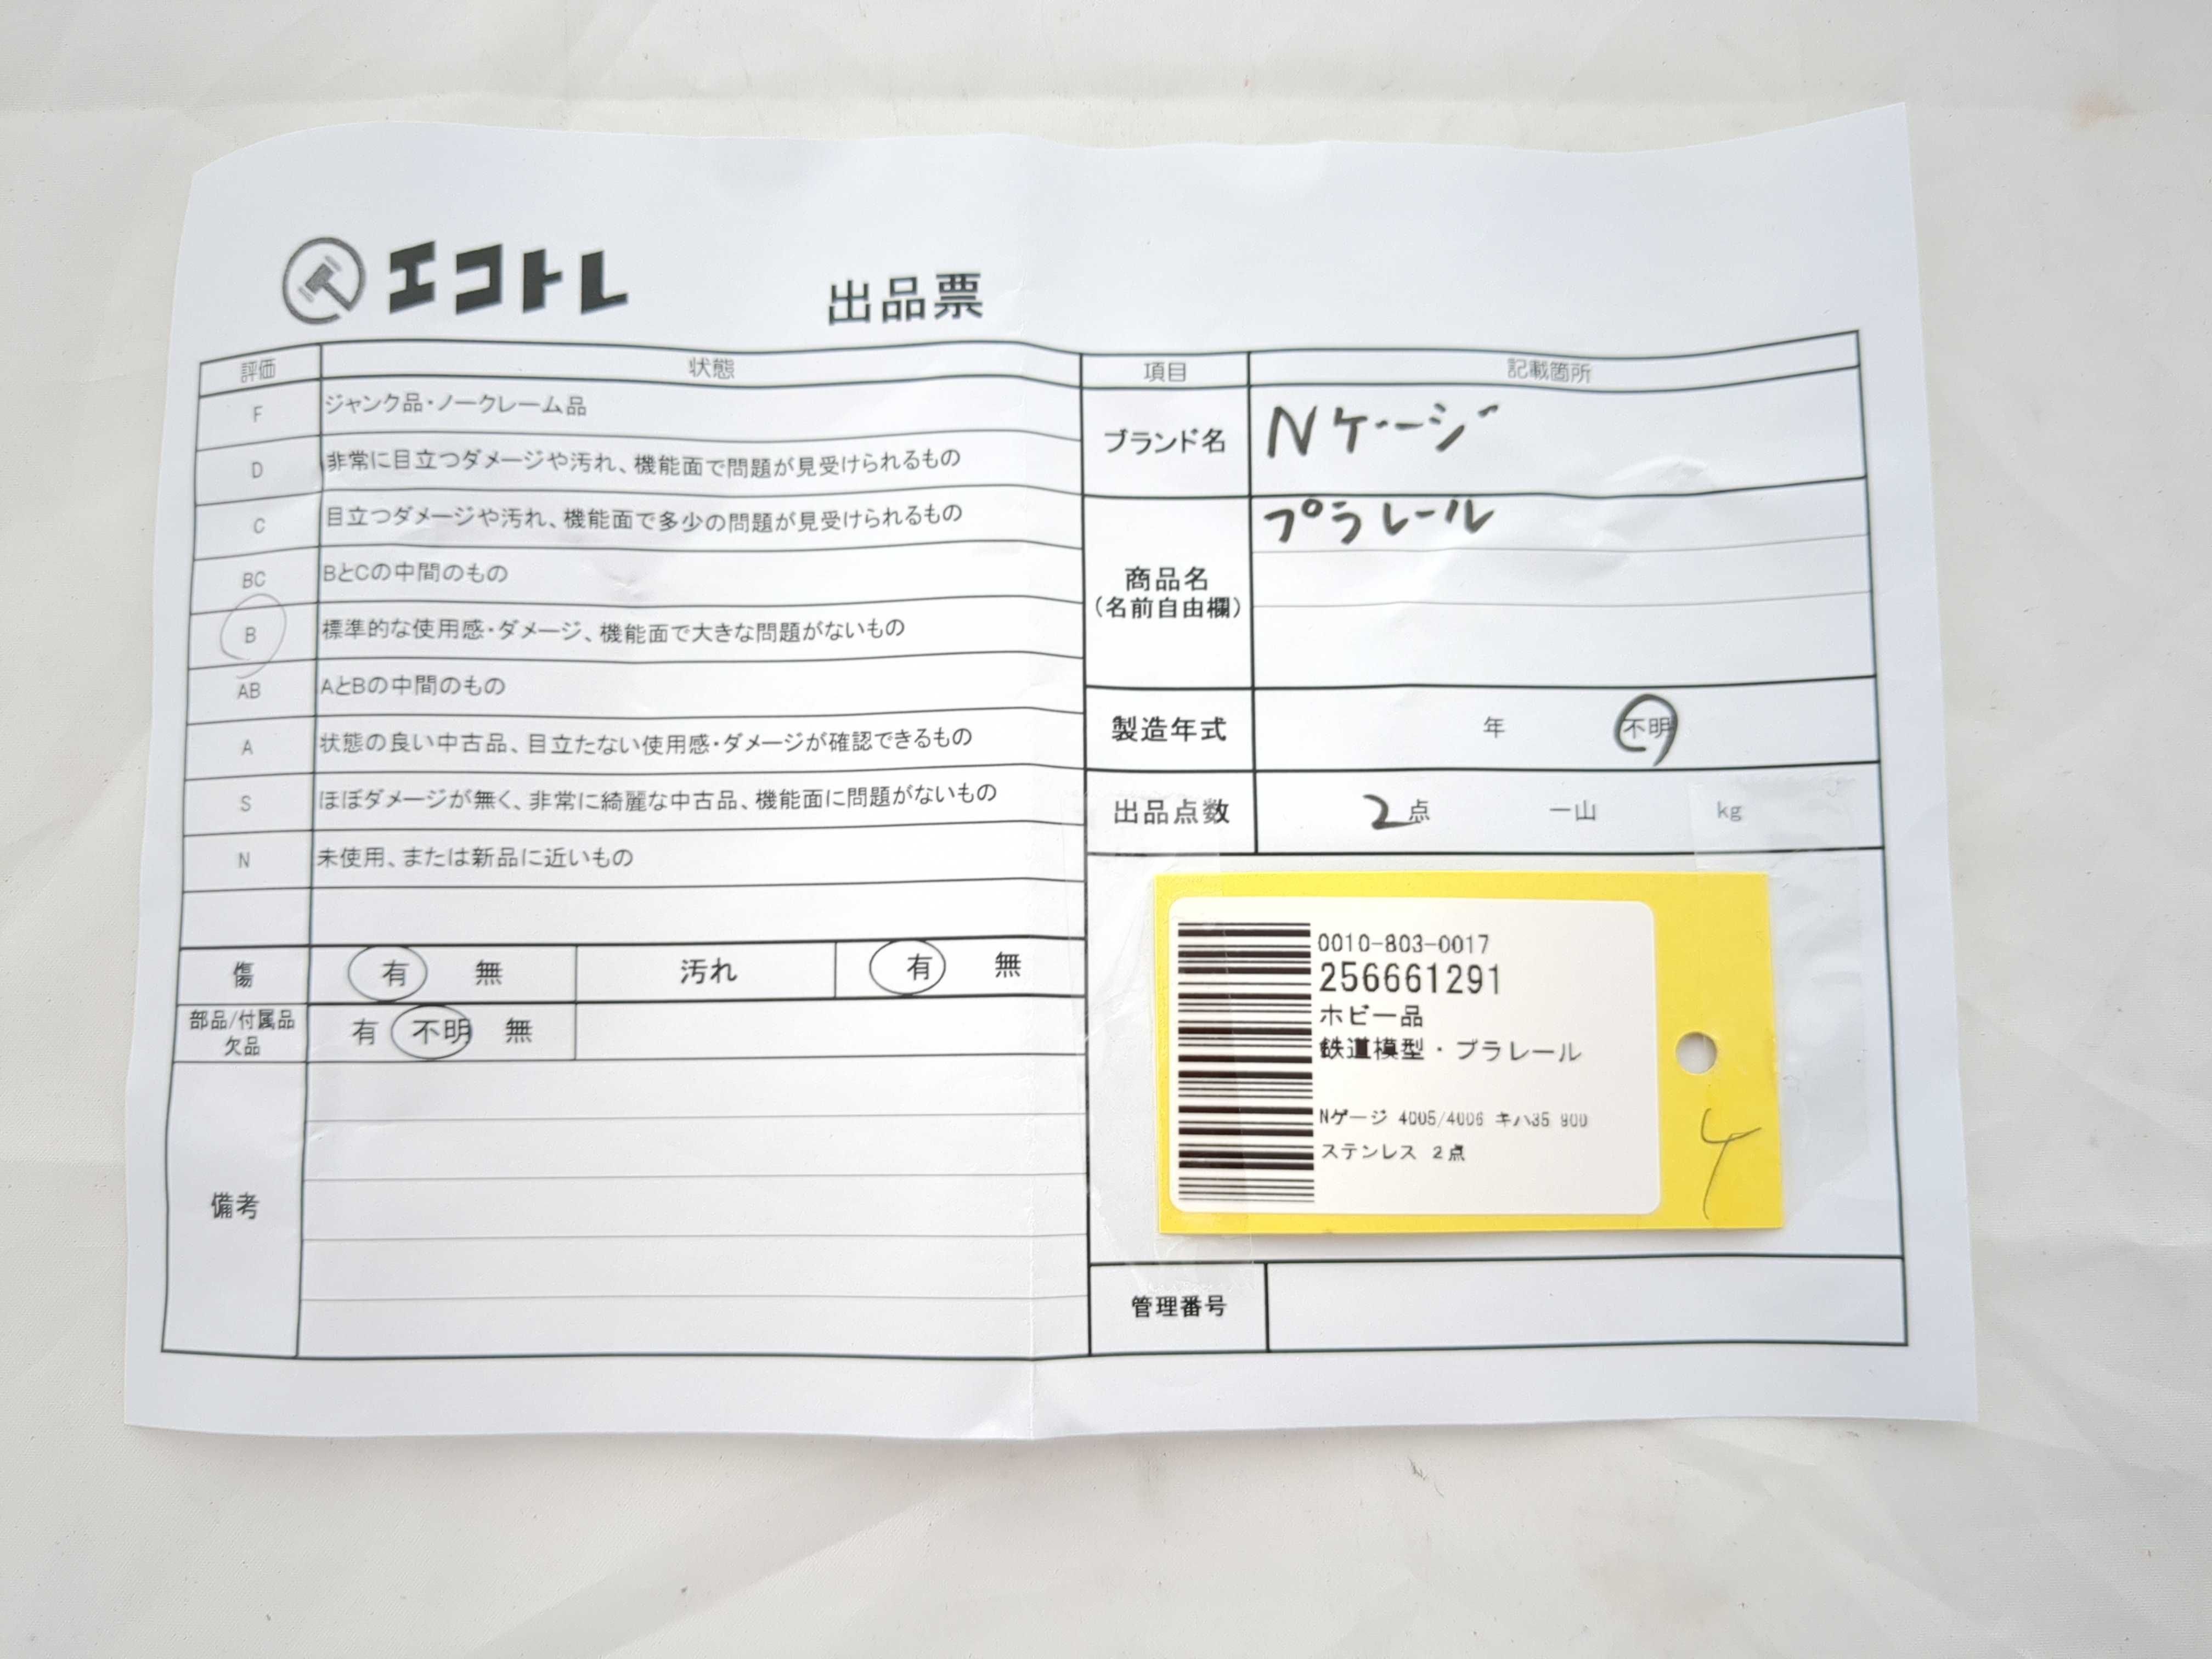 エコトレ
出品票
評価 状態
F ジャンク品・ノークレーム品
D 非常に目立つダメージや汚れ、機能面で問題が見受けられるもの
C 目立つダメージや汚れ、機能面で多少の問題が見受けられるもの
BC BとCの中間のもの
B 標準的な使用感・ダメージ、機能面で大きな問題がないもの
AB AとBの中間のもの
A 状態の良い中古品、目立たない使用感・ダメージが確認できるもの
S ほぼダメージが無く、非常に綺麗な中古品、機能面に問題がないもの
N 未使用、または新品に近いもの
傷 有 無 汚れ 有 無
部品/付属品
欠品
有 不明 無
備考
項目 記載箇所
ブランド名 Nゲージ
商品名
(名前自由欄)
プラレール
製造年式 年 不明
出品点数 2点 一山 kg
0010-803-0017
256661291
ホビー品
鉄道模型・プラレール
Nゲージ 4005/4006 キハ35 900
ステンレス 2点
4
管理番号